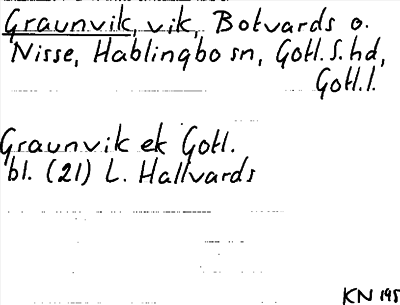 Graunvik, vik, Botvards o.
Nisse, Hablingbo sn, Gotl. S. hd,
Gotl. l.
Graunvik ek Gotl.
bl. (21) L. Hallvards
KN 195